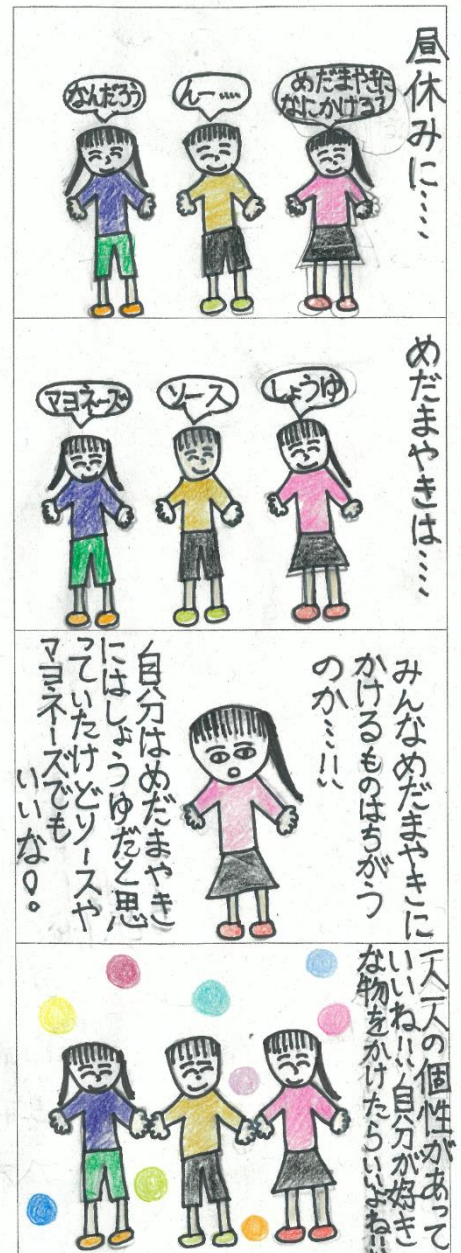 昼休みに・・・・
めだまやきに
なにかける？
んー・・・・
なんだろう
めだまやきは・・・・
しょうゆ
ソース
マヨネーズ
みんなめだまやきに
かけるものはちがう
のか・・・!!
自分はめだまやき
にはしょうゆだと思
っていたけどソースや
マヨネーズでも
いいな♡。
一人一人の個性があって
いいね!!自分が好き
な物をかけたらいいよね!!